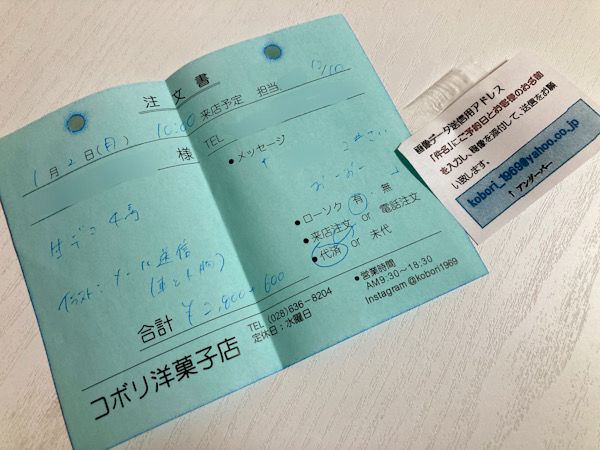 注文書
12/10
1月2日(月) 10:00 来店予定 担当
様
TEL
●メッセージ
生デコ4号
イラスト:メール送信
●ローソク 有 無
●来店注文 or 電話注文
●代済 or 未代
合計 ¥2,800+600
●営業時間
AM9:30~18:30
Instagram @kobori1969
コボリ洋菓子店
TEL (028)636-8204
定休日:水曜日
画像データ送信用アドレス
「件名」にご予約日とお客様のお名前
を入力し、画像を添付して、送信をお願
い致します。
kobori_1969@yahoo.co.jp
↑ アンダーバー